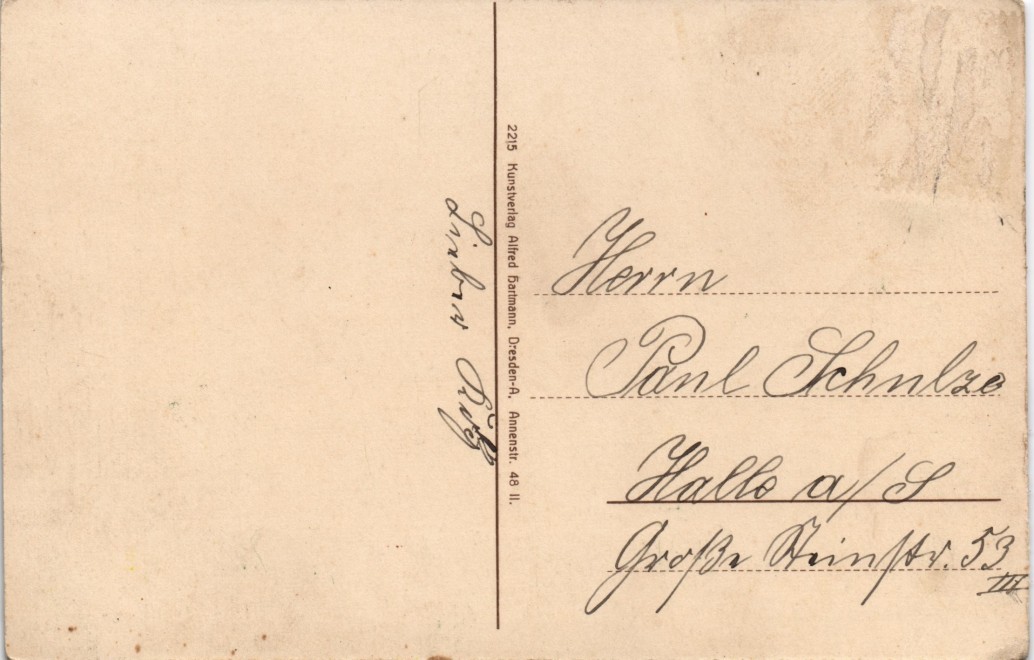 Lieber Rud
2215 Kunstverlag Alfred Hartmann, Dresden-A, Annenstr. 48 II.
Herrn
Paul Schulze
Halle a/S
Große Steinstr. 53
III